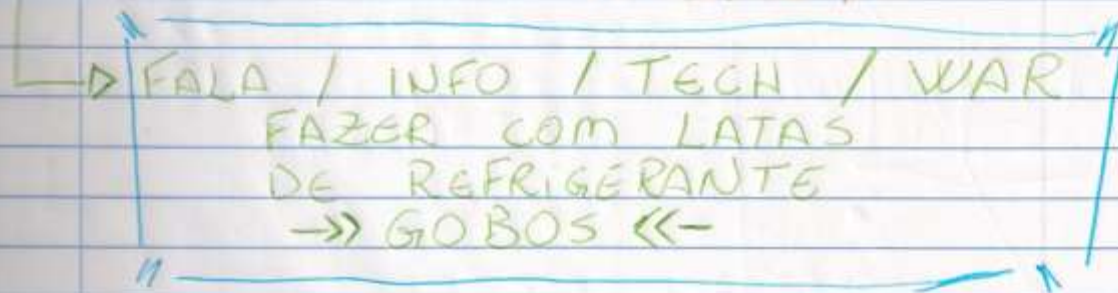 FALA / INFO / TECH / WAR
FAZER COM LATAS
DE REFRIGERANTE
->> GOBOS <<-